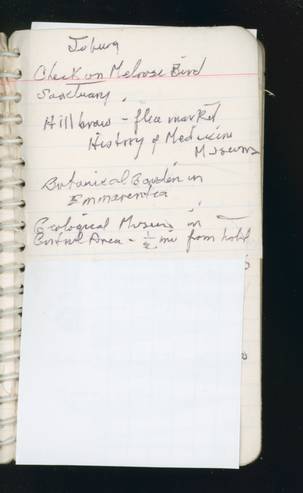 Joburg
Check on Melrose Bird
Sanctuary.
Hillbrow - flea market
History of Medicine
Museum
Botanical Garden in
Emmarentia
Geological Museum in
Central Area - 1/2 mi from hotel